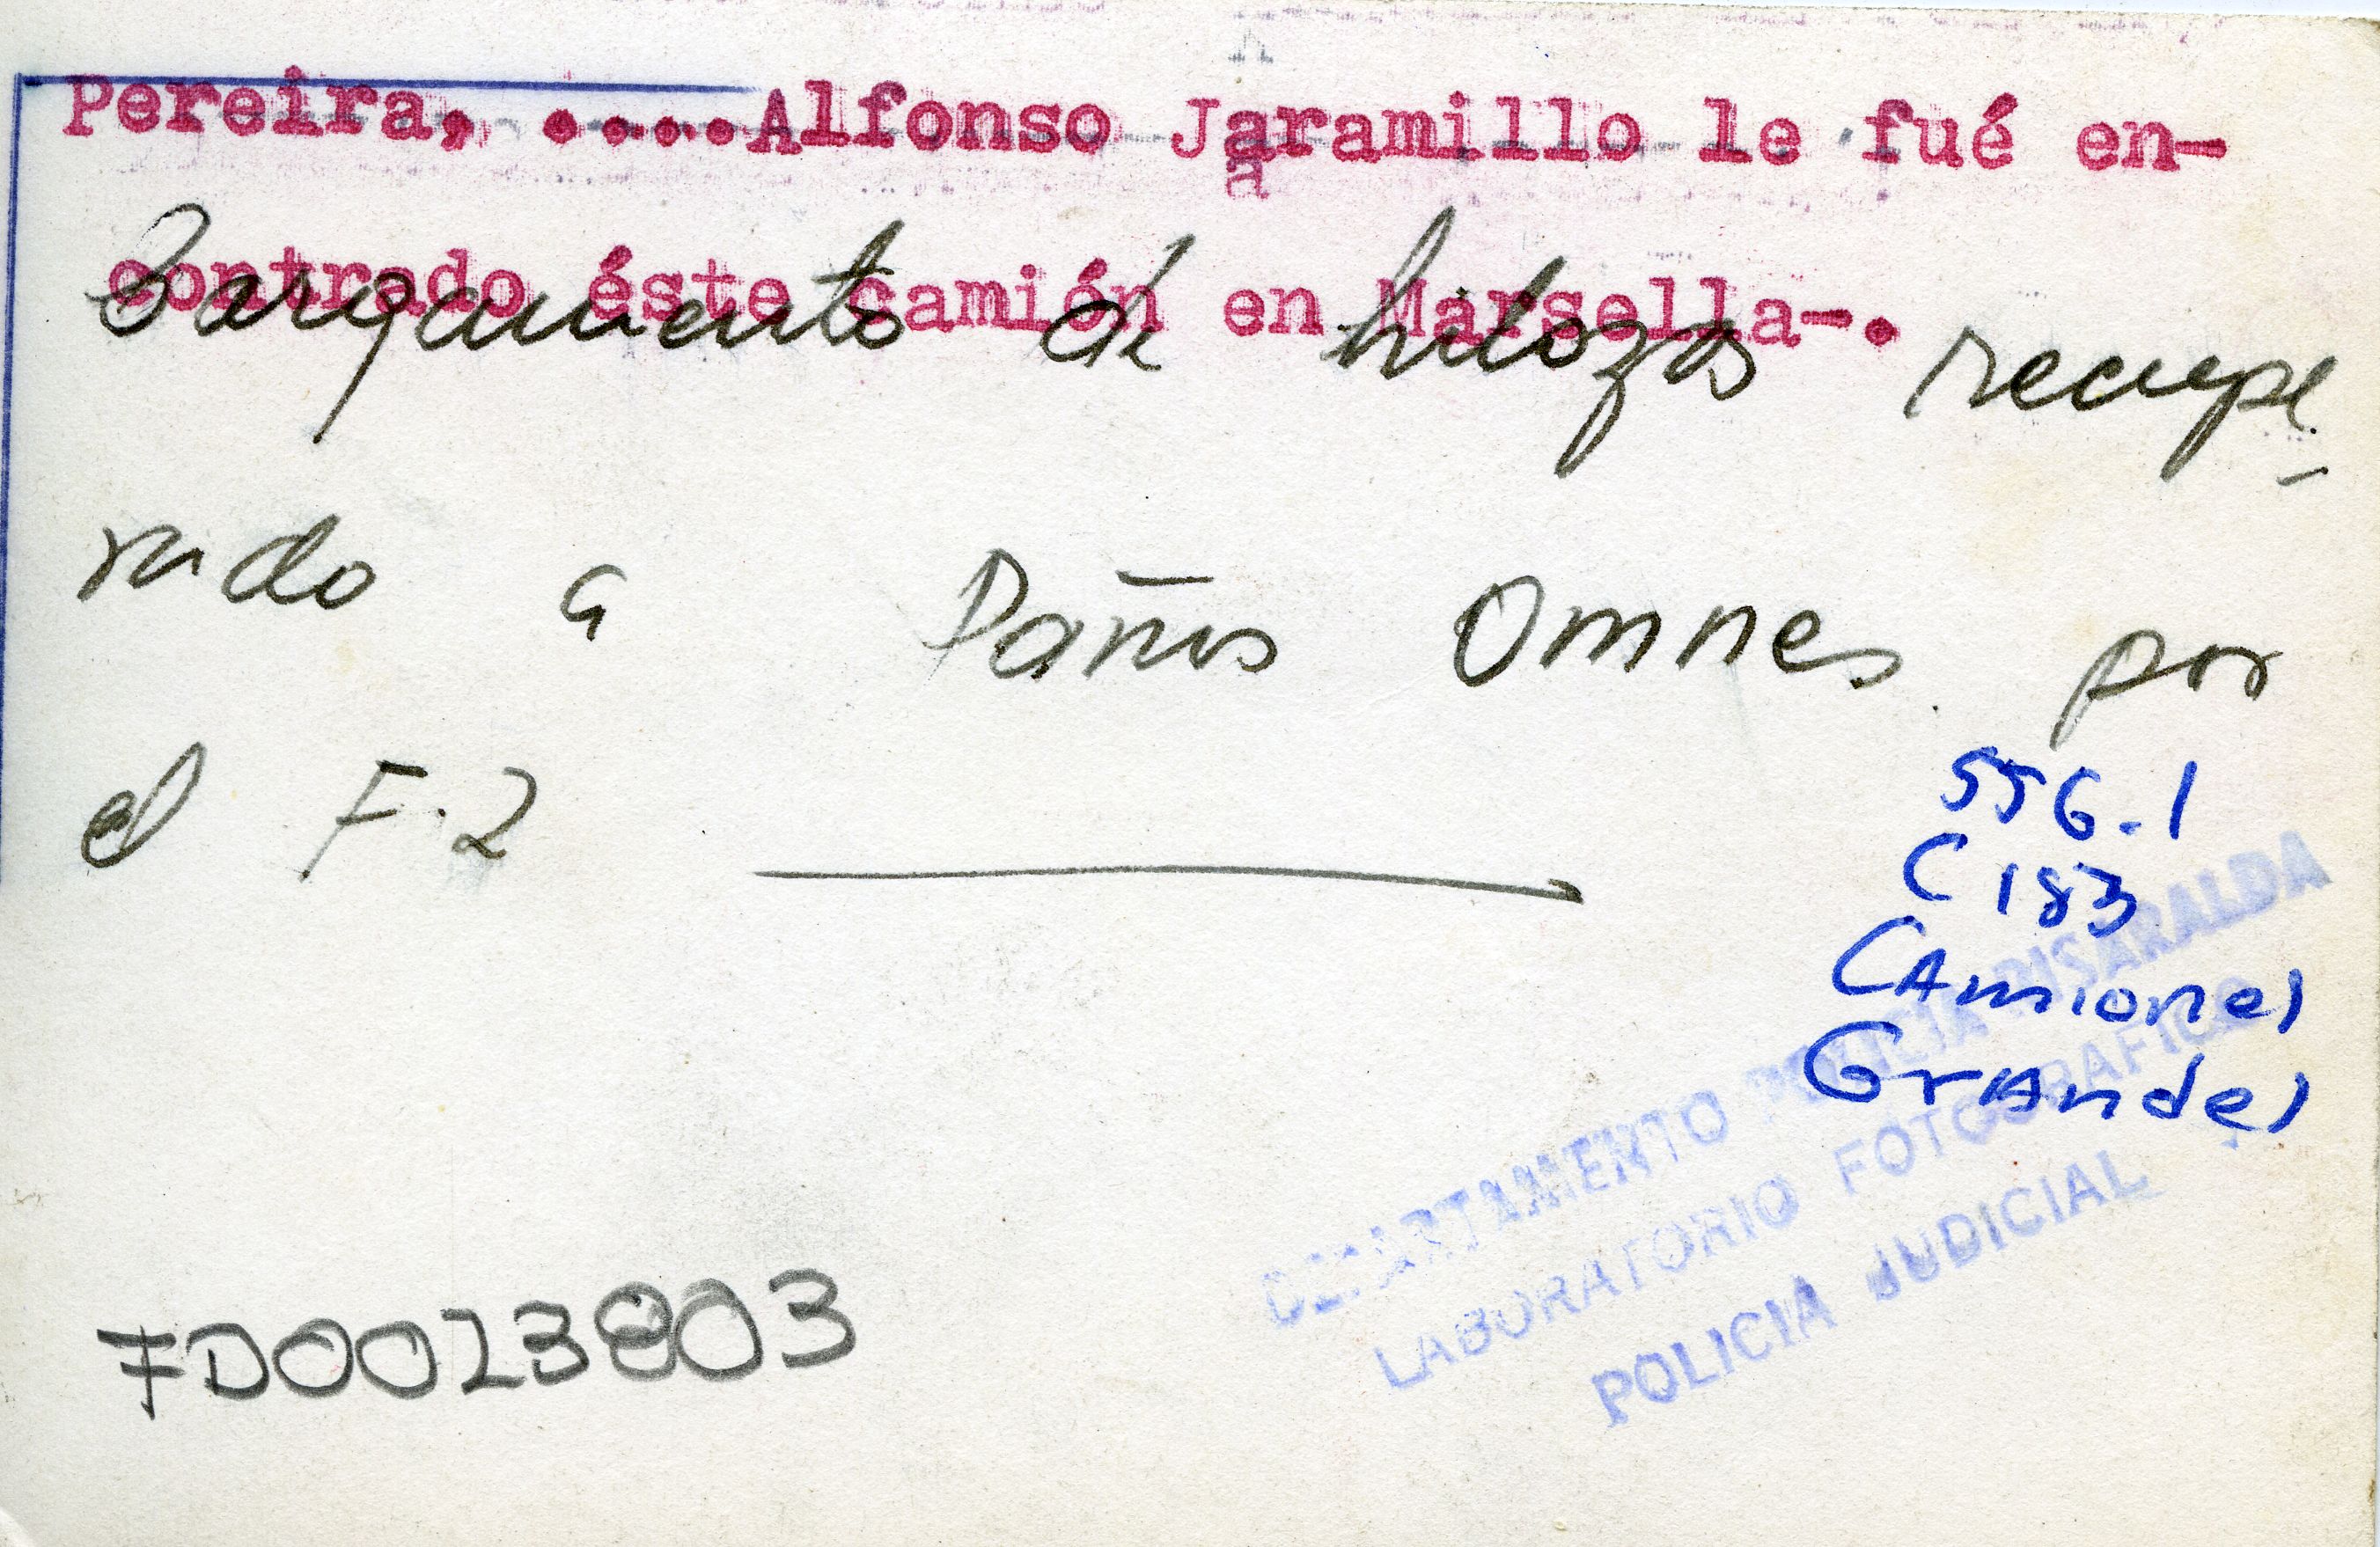 Pereira, .....Alfonso Jaramillo le fué en-
contrado éste camión en Marsella-.
Cargamento de hilozas recupe-
rado a Paños Omnes por
el F.2
556.1
C 183
CAmiones
GrAndes
DEPARTAMENTO POLICIA RISARALDA
LABORATORIO FOTOGRAFICO
POLICIA JUDICIAL
FD0023803